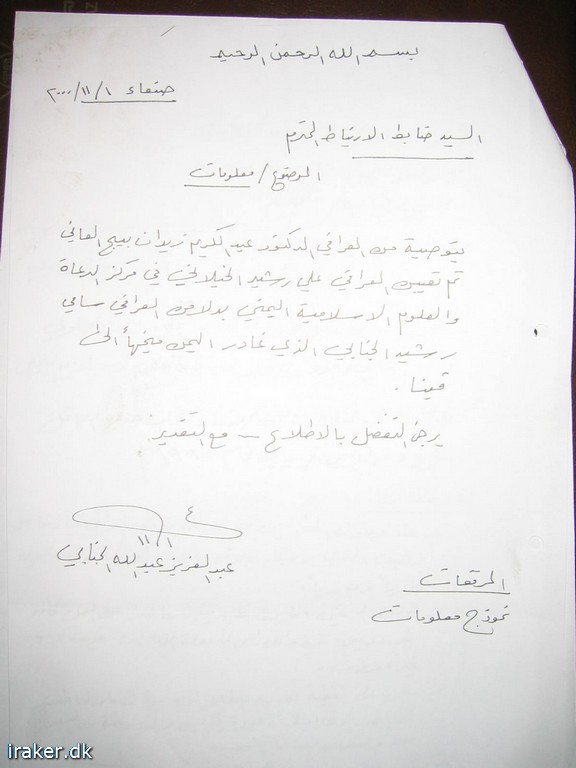 بسم الله الرحمن الرحيم
صنعاء ١/١١/٢٠٠٠
السيد ضابط الارتباط المحترم
الموضوع/ معلومات
بتوصية من العراقي الدكتور عبد الكريم زيدان بيج العاني
تم تعيين العراقي علي رشيد الخيلاني في مركز الدعاة
والعلوم الاسلامية اليمني بدلا من العراقي سامي
رشيد الجنابي الذي غادر اليمن متجهاً الى
فينا.
يرجى التفضل بالاطلاع – مع التقدير.
١١/١
عبد العزيز عبد الله الجنابي
المرفقات
نموذج معلومات
iraker.dk